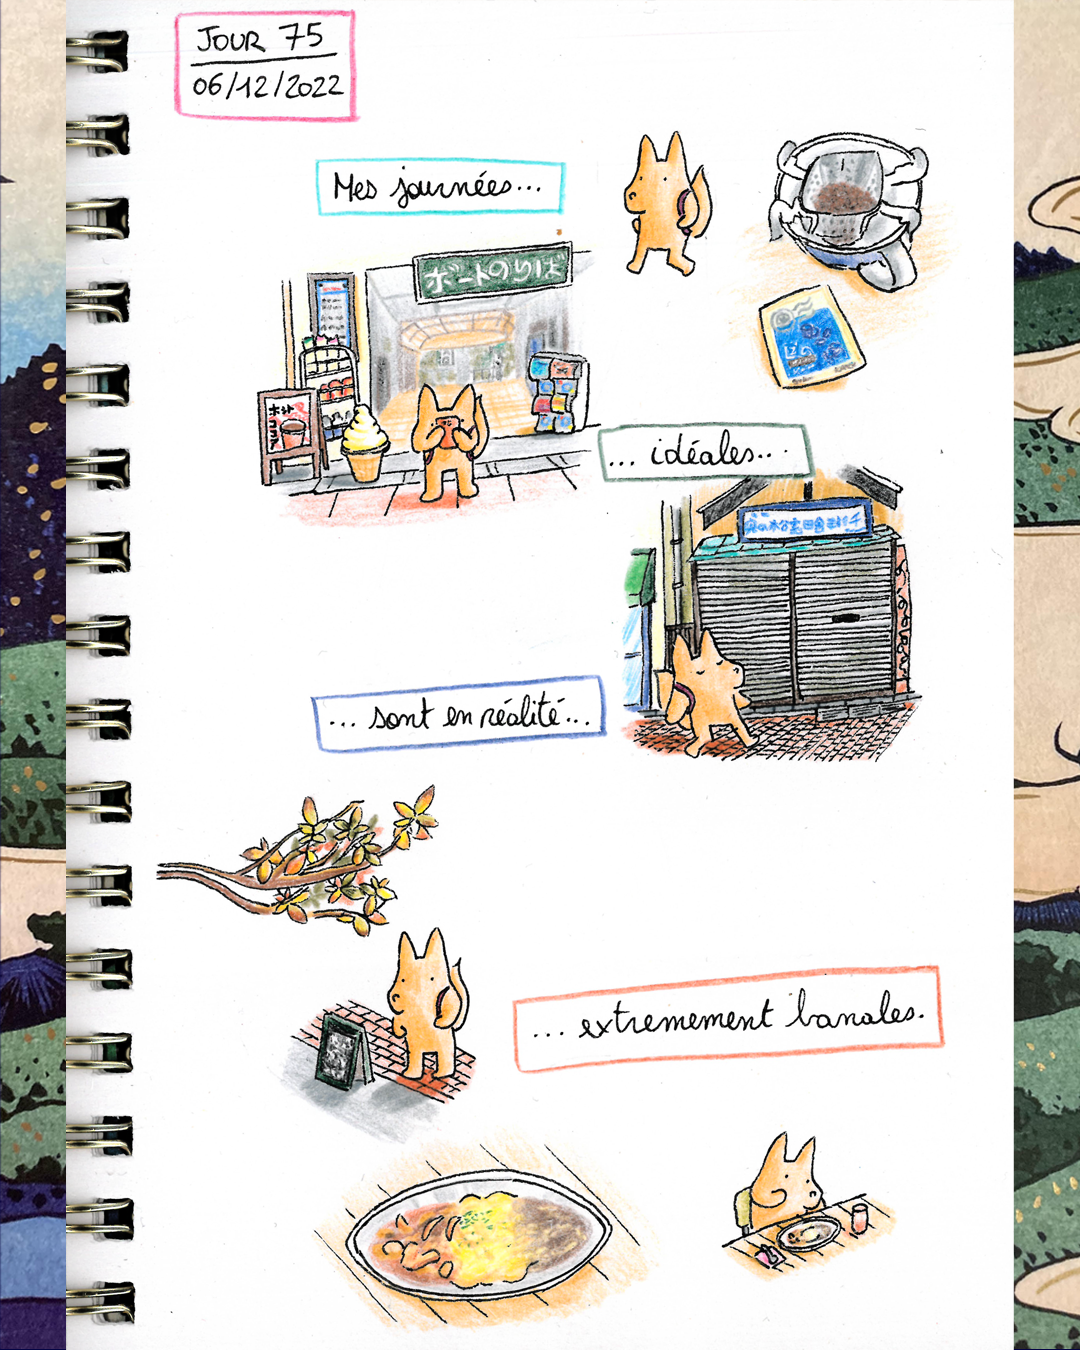 JOUR 75
06/12/2022
Mes journées...
ボートのりば
... idéales...
... sont en réalité...
... extremement banales.